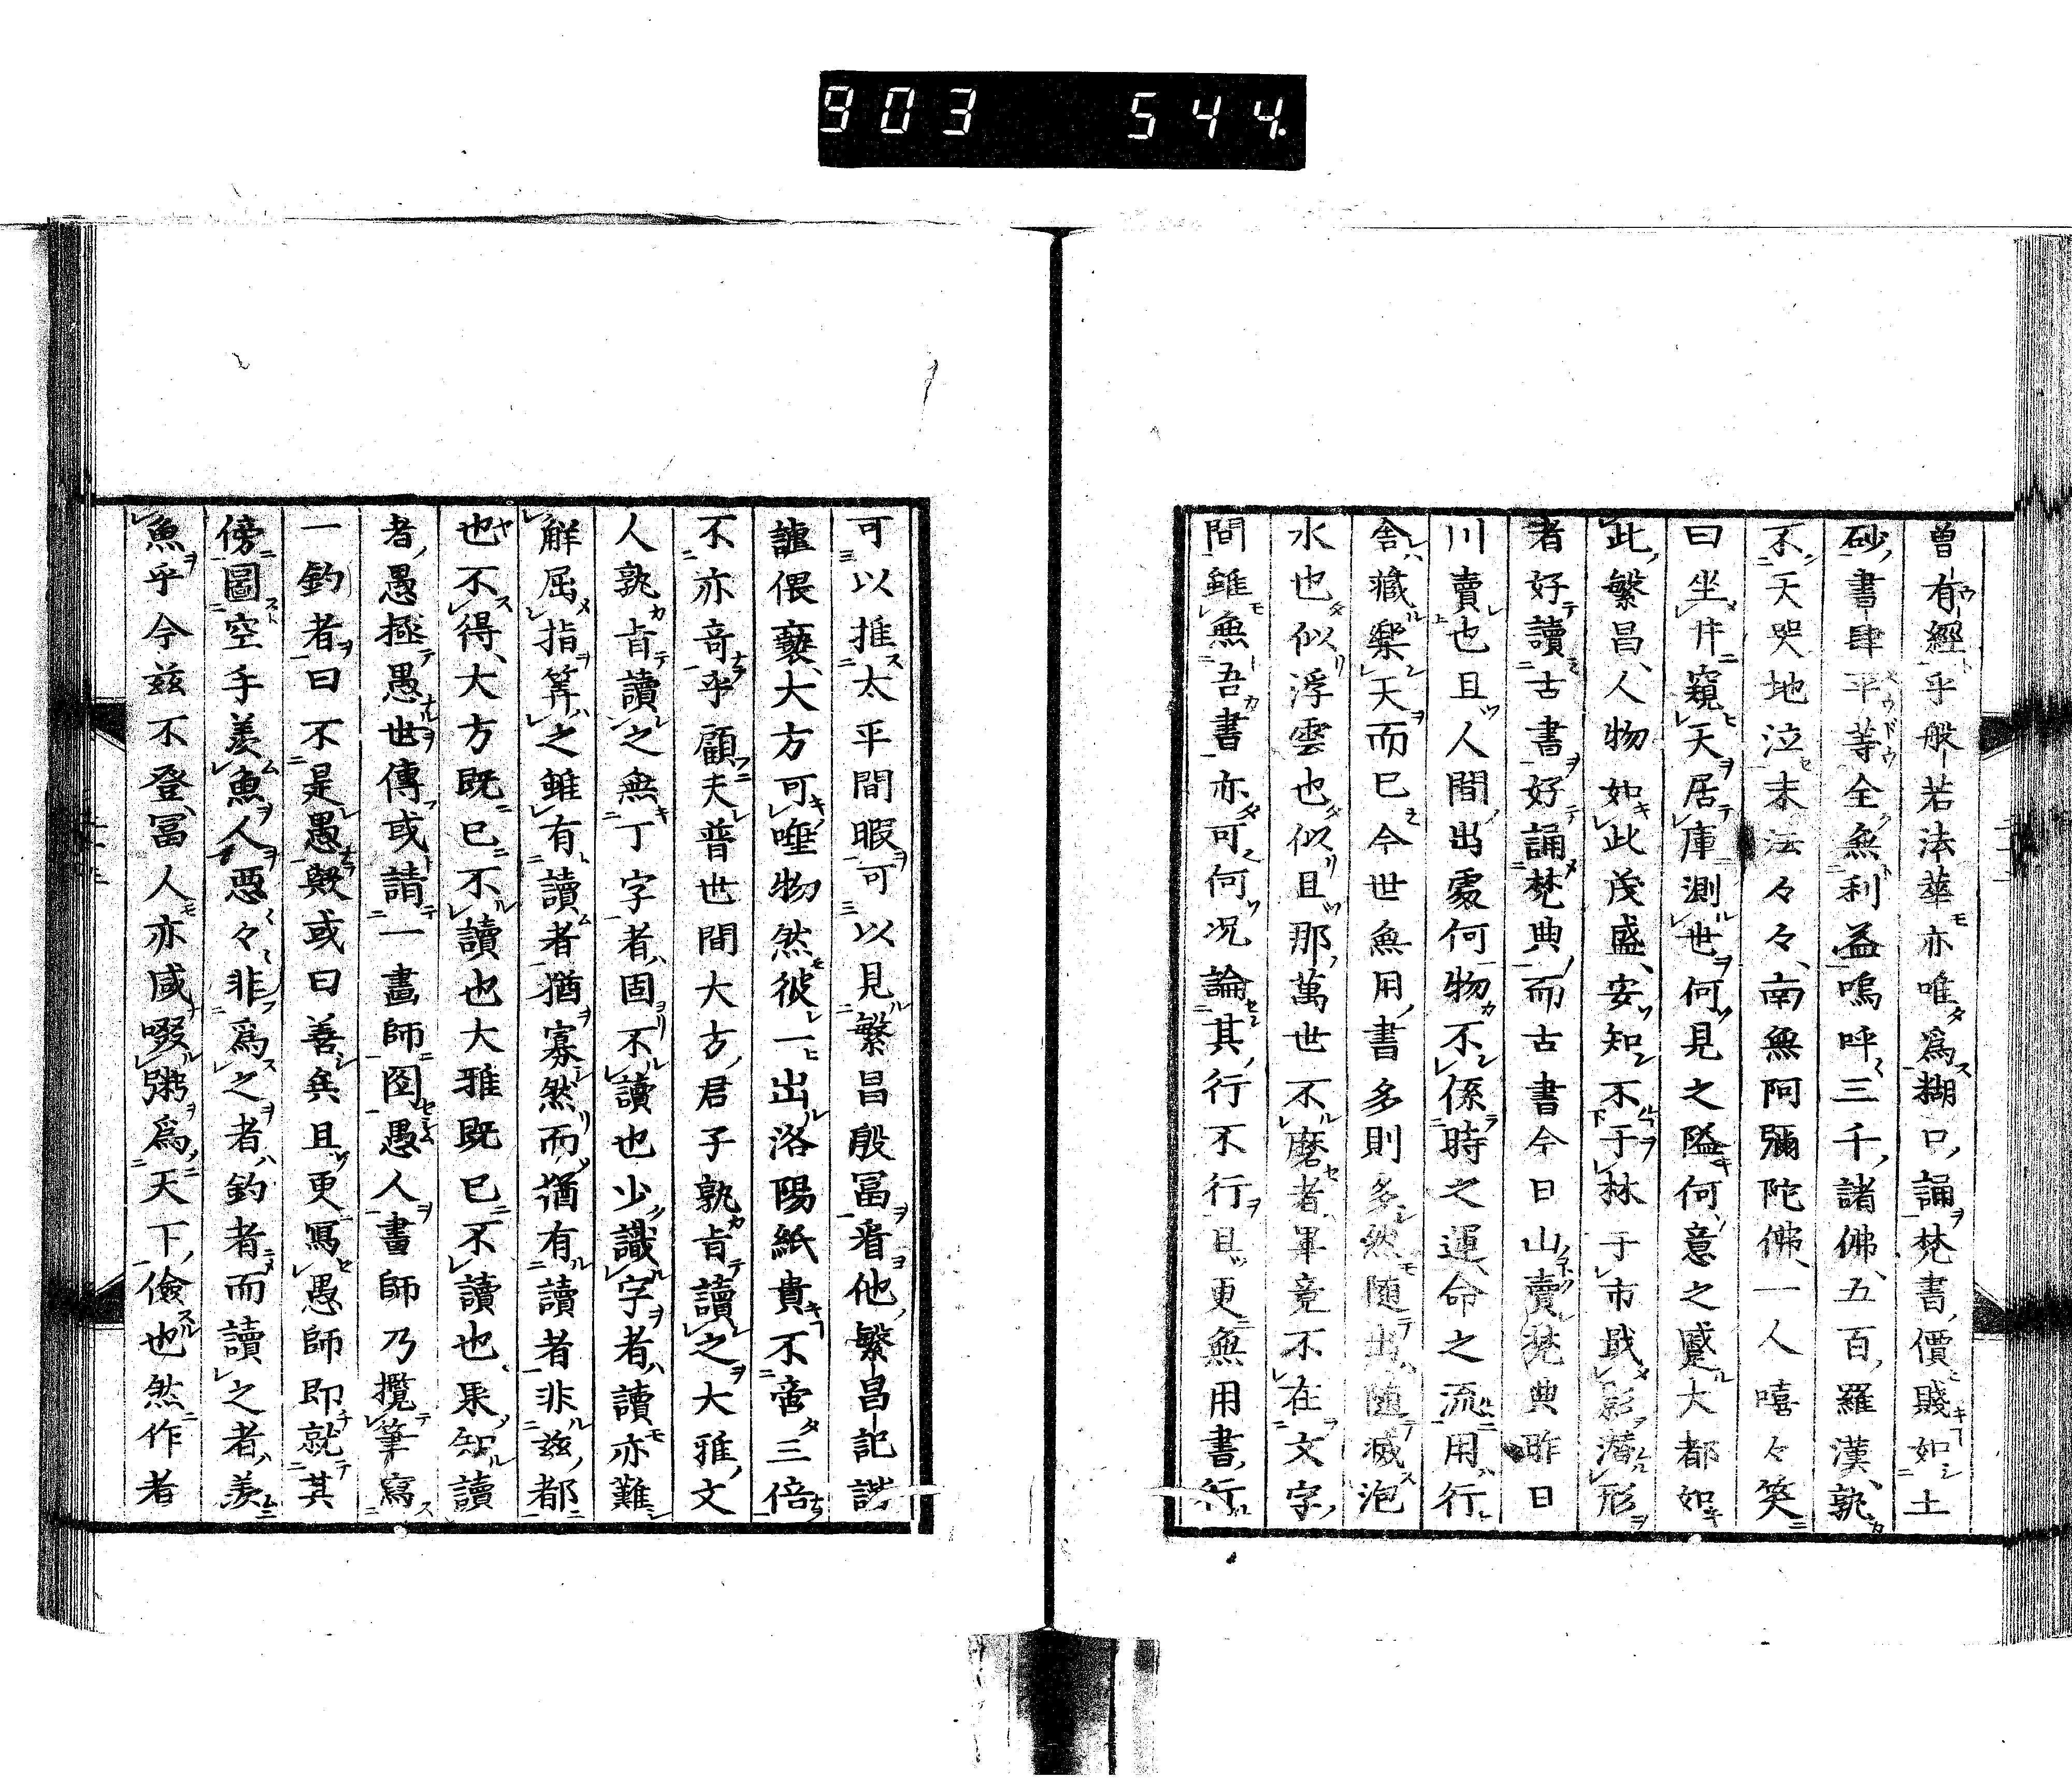 903 544.
曽有經乎般若法華亦唯爲糊口誦梵書價賤如土
砂書肆平等全無利益嗚呼三千諸佛五百羅漢孰
不天哭地泣末法々々南無阿彌陀佛一人嘻々笑
曰坐井窺天居庫測世何見之隘何意之蹙大都如
此繁昌人物如此茂盛安知不于林于市戢影潜形
者好讀古書好誦梵典而古書今日山賣梵典昨日
川賣也且人間出處何物不係時之運命之流用行
舎藏樂天而已今世無用書多則多然随出随滅泡
水也似浮雲也似且那萬世不磨者畢竟不在文字
間雖無吾書亦可何况論其行不行且更無用書行
可以推太平間暇可以見繁昌殷冨看他繁昌記謔
謔偎褻大方可唾物然彼一出洛陽紙貴不啻三倍
不亦竒乎顧夫普世間大方君子孰肯讀之大雅文
人孰肯讀之無丁字者固不讀也少識字者讀亦難
解屈指筭之雖有讀者猶寡然而猶有讀者非玆都
也不得大方既已不讀也大雅既已不讀也果知讀
者愚極愚世傳或請一畫師圖愚人畫師乃攬筆寫
一釣者曰不是愚歟或曰善矣且更寫愚師即就其
傍圖空手羨魚人悪々非爲之者釣者而讀之者羨
魚乎今玆不登冨人亦咸啜粥爲天下儉也然作者